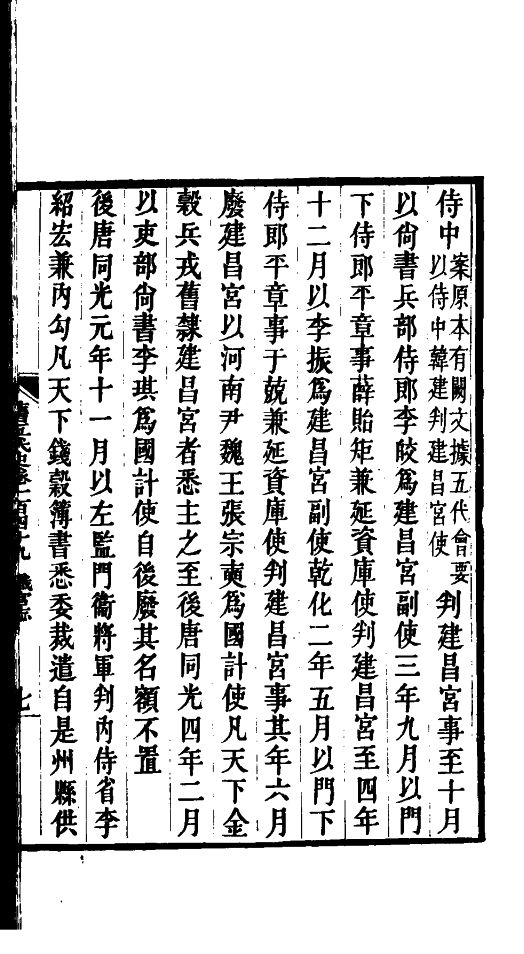 侍中案原本有闕文據五代會要以侍中韓建判建昌宮使判建昌宮事至十月
以尙書兵部侍郎李皎爲建昌宮副使三年九月以門
下侍郎平章事薛貽矩兼延資庫使判建昌宮至四年
十二月以李振爲建昌宮副使乾化二年五月以門下
侍郎平章事于兢兼延資庫使判建昌宮事其年六月
廢建昌宮以河南尹魏王張宗奭爲國計使凡天下金
穀兵戎舊隸建昌宮者悉主之至後唐同光四年二月
以吏部尙書李琪爲國計使自後廢其名額不置
後唐同光元年十一月以左監門衞將軍判內侍省李
紹宏兼內勾凡天下錢穀簿書悉委裁遣自是州縣供
舊五代史卷一百四十九 職官志 七